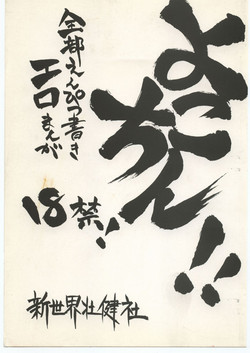 よっちん!!
全部えんぴつ書き
エロまんが
18禁!
新世界壮健社